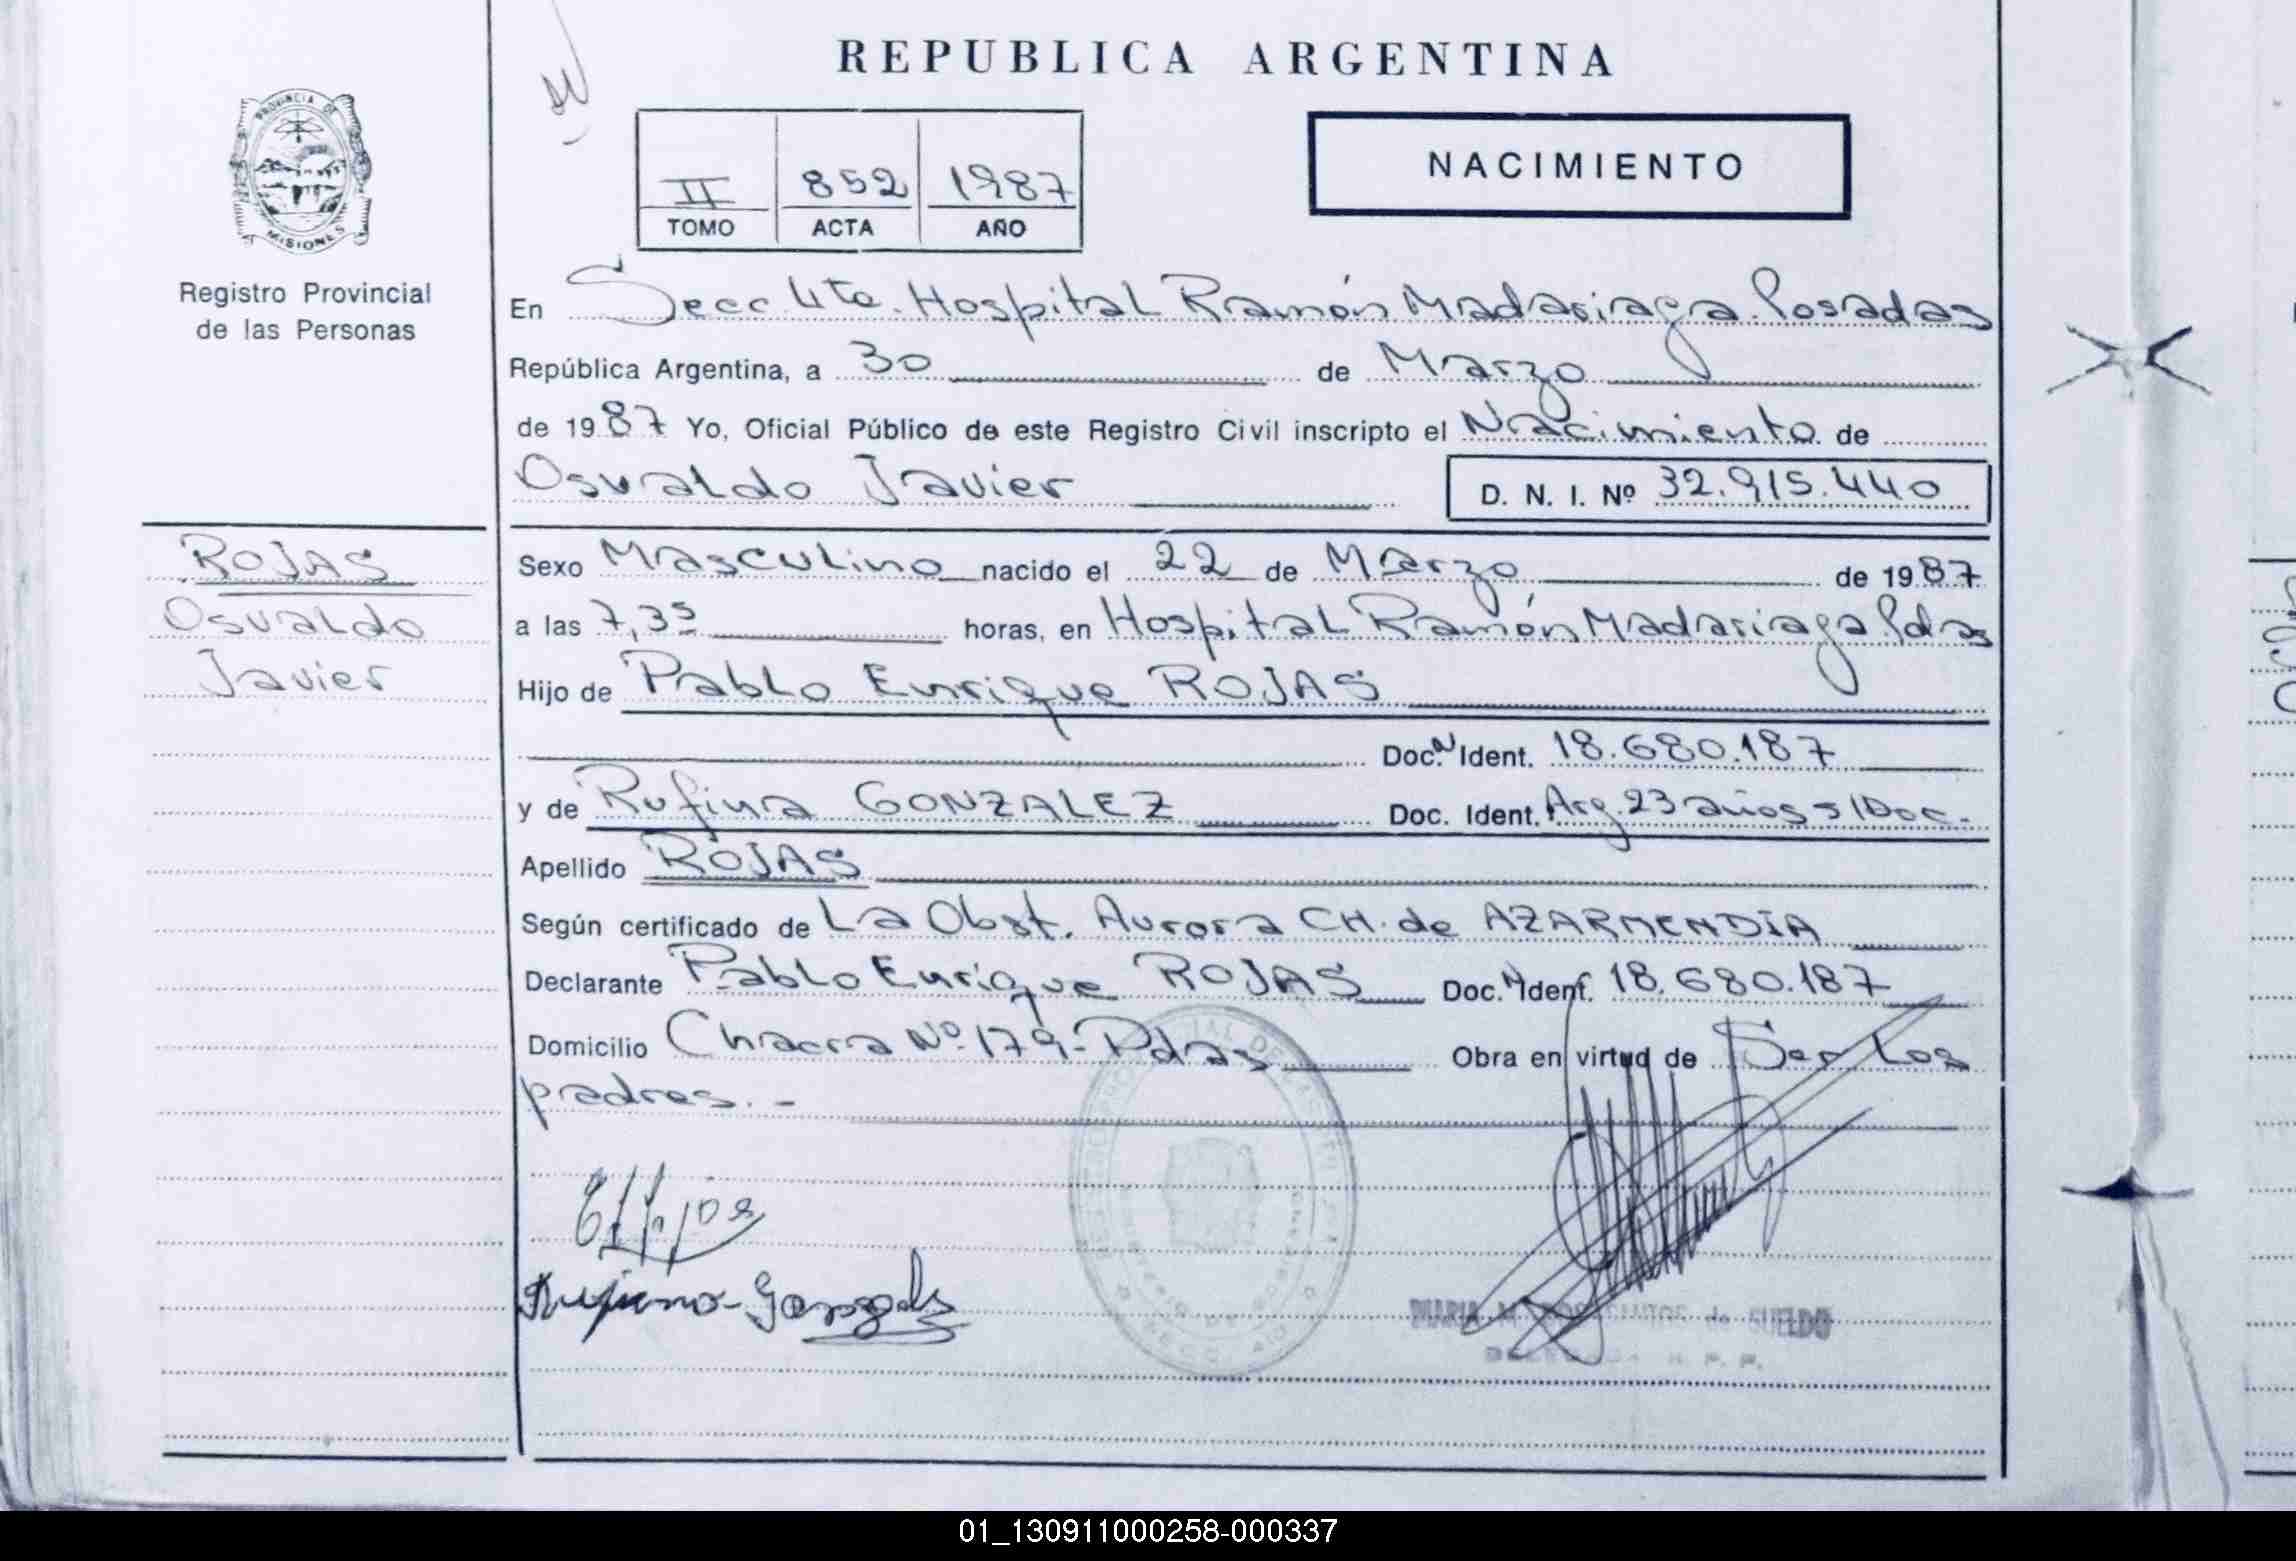 REPUBLICA ARGENTINA
PROVINCIA DE
MISIONES
Registro Provincial
de las Personas
II 852 1987
TOMO ACTA AÑO
NACIMIENTO
En Secc 4ta. Hospital Ramón Madariaga. Posadas
República Argentina, a 30 de Marzo
de 1987 Yo, Oficial Público de este Registro Civil inscripto el Nacimiento de
Osvaldo Javier D. N. I. Nº 32.915.440
ROJAS
Osvaldo
Javier
Sexo Masculino nacido el 22 de Marzo de 1987
a las 7,35 horas, en Hospital Ramón Madariaga Pdas
Hijo de Pablo Enrique ROJAS
Doc. N Ident. 18.680.187
y de Rufina GONZALEZ Doc. Ident. Arg. 23 años s/Doc.-
Apellido ROJAS
Según certificado de La Obst. Aurora CH. de AZARMENDIA
Declarante Pablo Enrique ROJAS Doc. N Ident. 18.680.187
Domicilio Chacra Nº 179- Pdas Obra en virtud de Ser los
padres. -
Rufina Gonzalez
MARIA de SUELDO
01_130911000258-000337